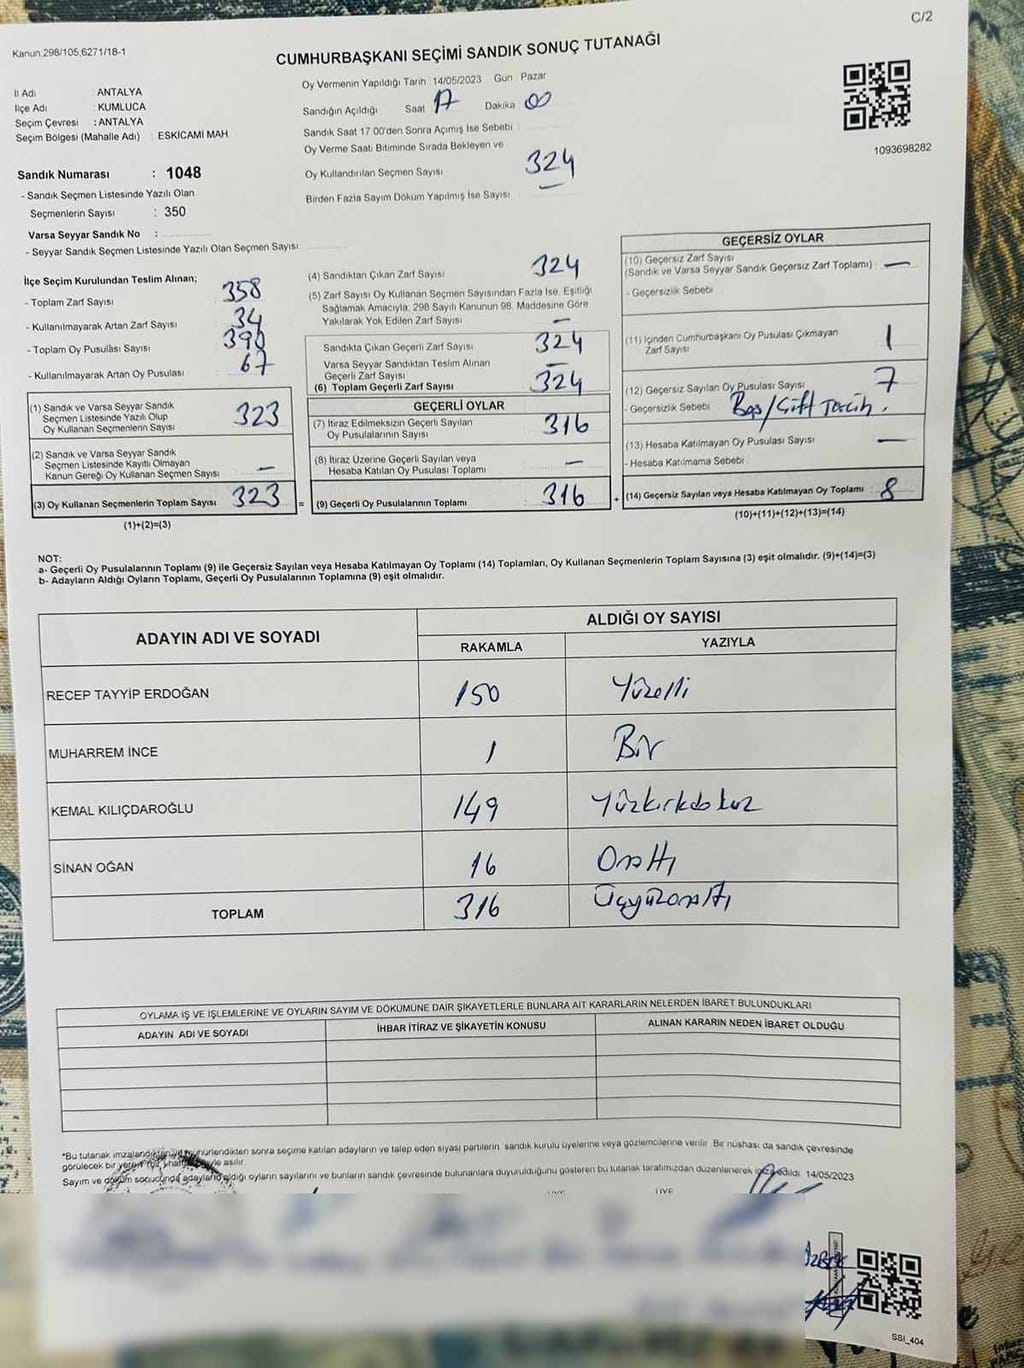 C/2
Kanun,298/105,6271/18-1
CUMHURBAŞKANI SEÇİMİ SANDIK SONUÇ TUTANAĞI
İl Adı : ANTALYA
İlçe Adı : KUMLUCA
Seçim Çevresi : ANTALYA
Seçim Bölgesi (Mahalle Adı) : ESKİCAMİ MAH.
Oy Vermenin Yapıldığı Tarih : 14/05/2023 Gün : Pazar
Sandığın Açıldığı Saat 17 Dakika 00
Sandık Saat 17:00'den Sonra Açımış İse Sebebi :
Oy Verme Saati Bitiminde Sırada Bekleyen ve
Oy Kullandırılan Seçmen Sayısı 324
Birden Fazla Sayım Döküm Yapılmış İse Sayısı :
1093698282
Sandık Numarası : 1048
- Sandık Seçmen Listesinde Yazılı Olan
Seçmenlerin Sayısı : 350
Varsa Seyyar Sandık No :
- Seyyar Sandık Seçmen Listesinde Yazılı Olan Seçmen Sayısı:
İlçe Seçim Kurulundan Teslim Alınan;
- Toplam Zarf Sayısı : 358
- Kullanılmayarak Artan Zarf Sayısı : 34
- Toplam Oy Pusulası Sayısı : 390
- Kullanılmayarak Artan Oy Pusulası : 67
(1) Sandık ve Varsa Seyyar Sandık
Seçmen Listesinde Yazılı Olup
Oy Kullanan Seçmenlerin Sayısı 323
(2) Sandık ve Varsa Seyyar Sandık
Seçmen Listesinde Kayıtlı Olmayan
Kanun Gereği Oy Kullanan Seçmen Sayısı –
(3) Oy Kullanan Seçmenlerin Toplam Sayısı 323
(1)+(2)=(3)
(4) Sandıktan Çıkan Zarf Sayısı 324
(5) Zarf Sayısı Oy Kullanan Seçmen Sayısından Fazla İse, Eşitliği
Sağlamak Amacıyla; 298 Sayılı Kanunun 98. Maddesine Göre
Yakılarak Yok Edilen Zarf Sayısı –
Sandıkta Çıkan Geçerli Zarf Sayısı 324
Varsa Seyyar Sandıktan Teslim Alınan
Geçerli Zarf Sayısı –
(6) Toplam Geçerli Zarf Sayısı 324
GEÇERLİ OYLAR
(7) İtiraz Edilmeksizin Geçerli Sayılan
Oy Pusulalarının Sayısı 316
(8) İtiraz Üzerine Geçerli Sayılan veya
Hesaba Katılan Oy Pusulası Toplamı –
= (9) Geçerli Oy Pusulalarının Toplamı 316
GEÇERSİZ OYLAR
(10) Geçersiz Zarf Sayısı
(Sandık ve Varsa Seyyar Sandık Geçersiz Zarf Toplamı) : –
- Geçersizlik Sebebi :
(11) İçinden Cumhurbaşkanı Oy Pusulası Çıkmayan
Zarf Sayısı 1
(12) Geçersiz Sayılan Oy Pusulası Sayısı : 7
- Geçersizlik Sebebi : Boş/Çift Tercih.
(13) Hesaba Katılmayan Oy Pusulası Sayısı : –
- Hesaba Katılmama Sebebi :
+ (14) Geçersiz Sayılan veya Hesaba Katılmayan Oy Toplamı : 8
(10)+(11)+(12)+(13)=(14)
NOT:
a- Geçerli Oy Pusulalarının Toplamı (9) ile Geçersiz Sayılan veya Hesaba Katılmayan Oy Toplamı (14) Toplamları, Oy Kullanan Seçmenlerin Toplam Sayısına (3) eşit olmalıdır. (9)+(14)=(3)
b- Adayların Aldığı Oyların Toplamı, Geçerli Oy Pusulalarının Toplamına (9) eşit olmalıdır.
ADAYIN ADI VE SOYADI ALDIĞI OY SAYISI
RAKAMLA YAZIYLA
RECEP TAYYİP ERDOĞAN 150 Yüzelli
MUHARREM İNCE 1 Bir
KEMAL KILIÇDAROĞLU 149 Yüzkırkdokuz
SİNAN OĞAN 16 Onaltı
TOPLAM 316 Üçyüzonaltı
OYLAMA İŞ VE İŞLEMLERİNE VE OYLARIN SAYIM VE DÖKÜMÜNE DAİR ŞİKAYETLERLE BUNLARA AİT KARARLARIN NELERDEN İBARET BULUNDUKLARI
ADAYIN ADI VE SOYADI İHBAR İTİRAZ VE ŞİKAYETİN KONUSU ALINAN KARARIN NEDEN İBARET OLDUĞU
*Bu tutanak imzalandıktan ve mühürlendikten sonra seçime katılan adayların ve talep eden siyasi partilerin sandık kurulu üyelerine veya gözlemcilerine verilir. Bir nüshası da sandık çevresinde
görülecek bir yere asılır.
Sayım ve döküm sonucunda adayların aldığı oyların sayılarını ve bunların sandık çevresinde bulunanlara duyurulduğunu gösteren bu tutanak tarafımızdan düzenlenerek imza edildi. 14/05/2023
SSI_404